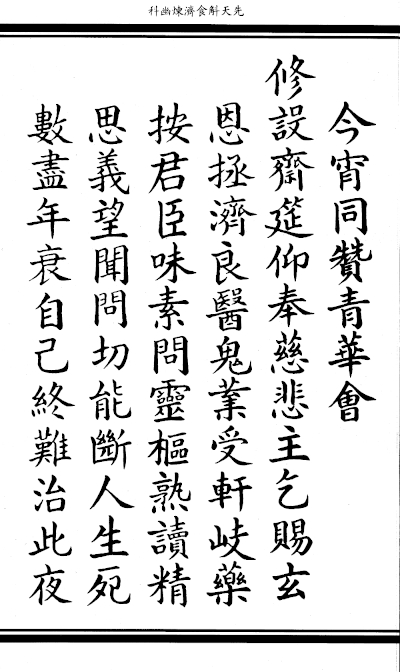 先天斛食濟煉幽科
今宵同贊青華會
修設齋筵仰奉慈悲主乞賜玄
恩拯濟良醫鬼業受軒岐藥
按君臣味素問靈樞熟讀精
思義望聞問切能斷人生死
數盡年衰自己終難治此夜